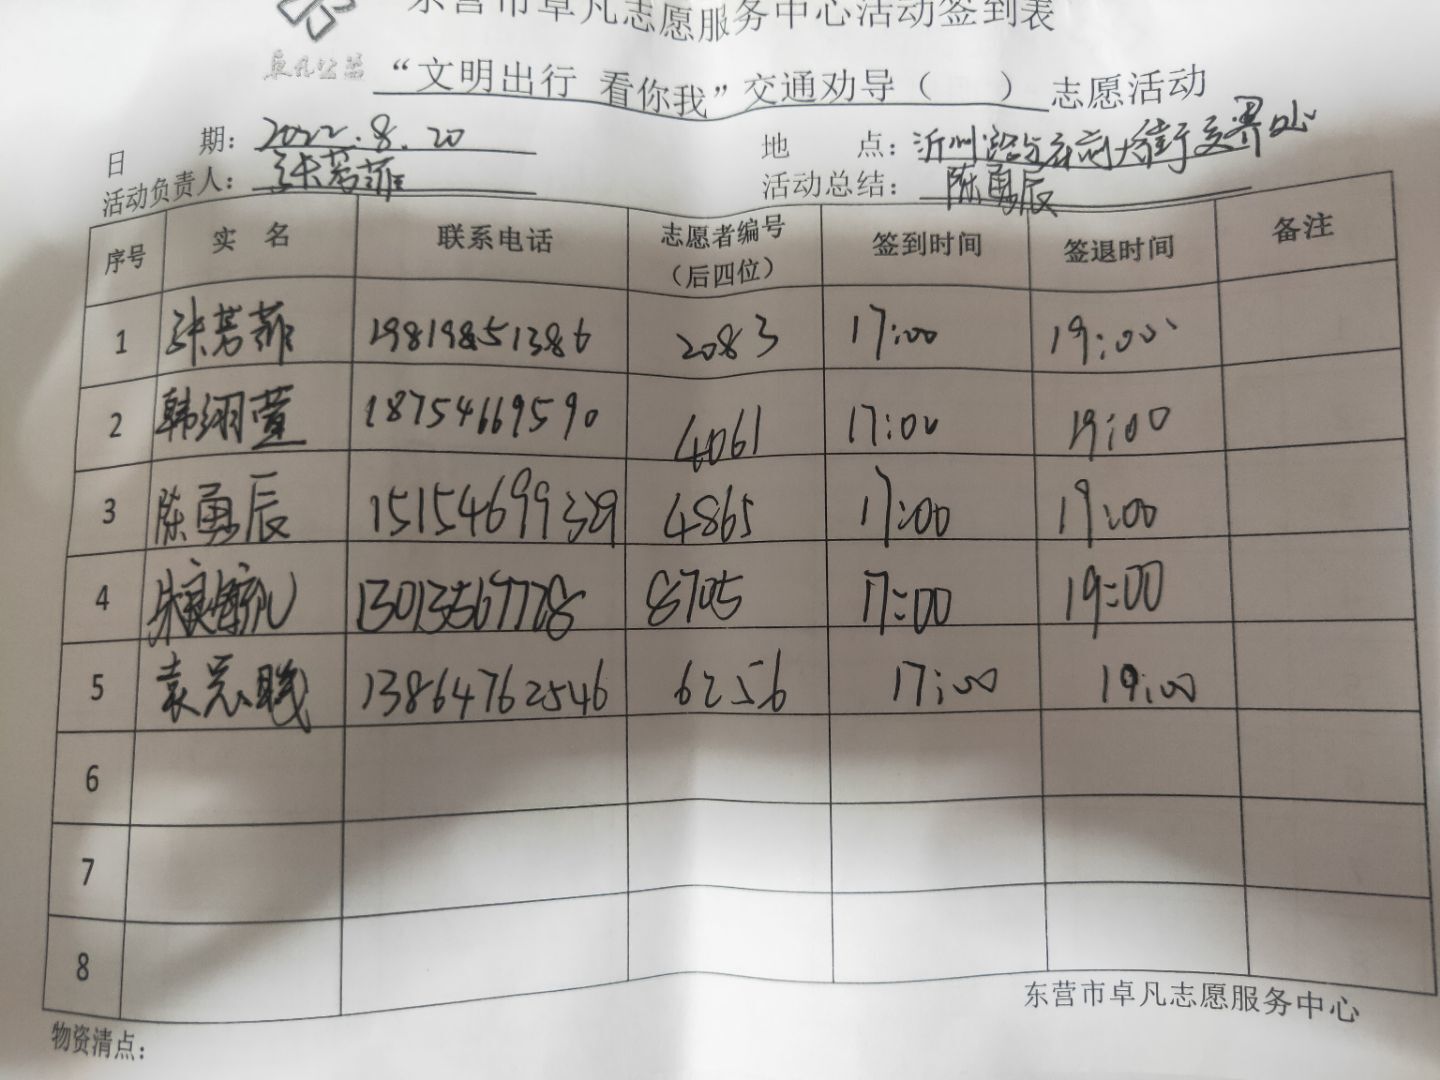 东营市卓凡志愿服务中心活动签到表
卓凡公益
“文明出行 看你我”交通劝导（ ）志愿活动
日 期：2022.8.20 地 点：沂州路与府前大街交界处
活动负责人：张芳菲 活动总结：陈勇辰
序号 实 名 联系电话 志愿者编号（后四位） 签到时间 签退时间 备注
1 张芳菲 19819851386 2083 17:00 19:00
2 韩翊萱 18754669590 4061 17:00 19:00
3 陈勇辰 15154699329 4865 17:00 19:00
4 13013567728 8705 17:00 19:00
5 袁 13864762546 6256 17:00 19:00
6
7
8
东营市卓凡志愿服务中心
物资清点：